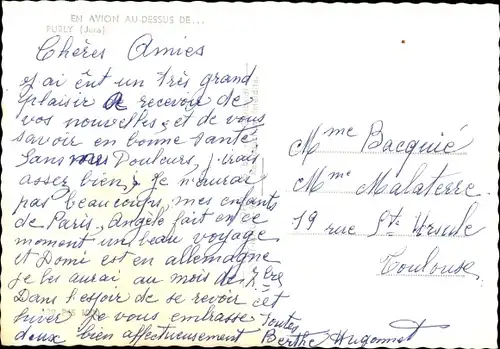 EN AVION AU-DESSUS DE...
PURLY (Jura)
Chères Amies
J'ai eût un très grand
plaisir de recevoir de
vos nouvelles, et de vous
savoir en bonne santé
Sans mes Douleurs, j'irais
asser bien, Je n'aurai
pas beaucoup, mes enfants
de Paris, Angèle fait en ce
moment un beau voyage
et Domi est en allemagne
je les aurai au mois de 7bre
Dans l'espoir de se revoir cet
hiver je vous embrasse toutes
deux bien affectueusement Berthe Hugonnet
Mme Bacquié
Mme Malaterre
19 rue Ste Ursule
Toulouse